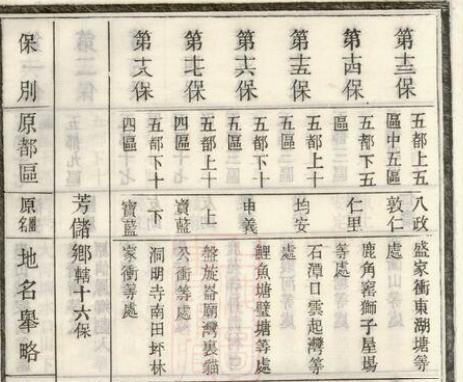 第十三保 五都上五區中五區 八政敦仁 盛家衝東湖塘等處
第十四保 五都下五區 仁里 鹿角窰獅子屋場等處
第十五保 五都上十區 均安 石潭口雲起灣等處
第十六保 五都下十區 申義 鯉魚塘璧塘等處
第十七保 五都上十四區 上寶藍 盤旋崙廟灣裏貓公衝等處
第十八保 五都下十四區 下寶藍 洞明寺南田坪林家衝等處
芳儲鄉轄十六保
保別 原都區 原名 地名舉略